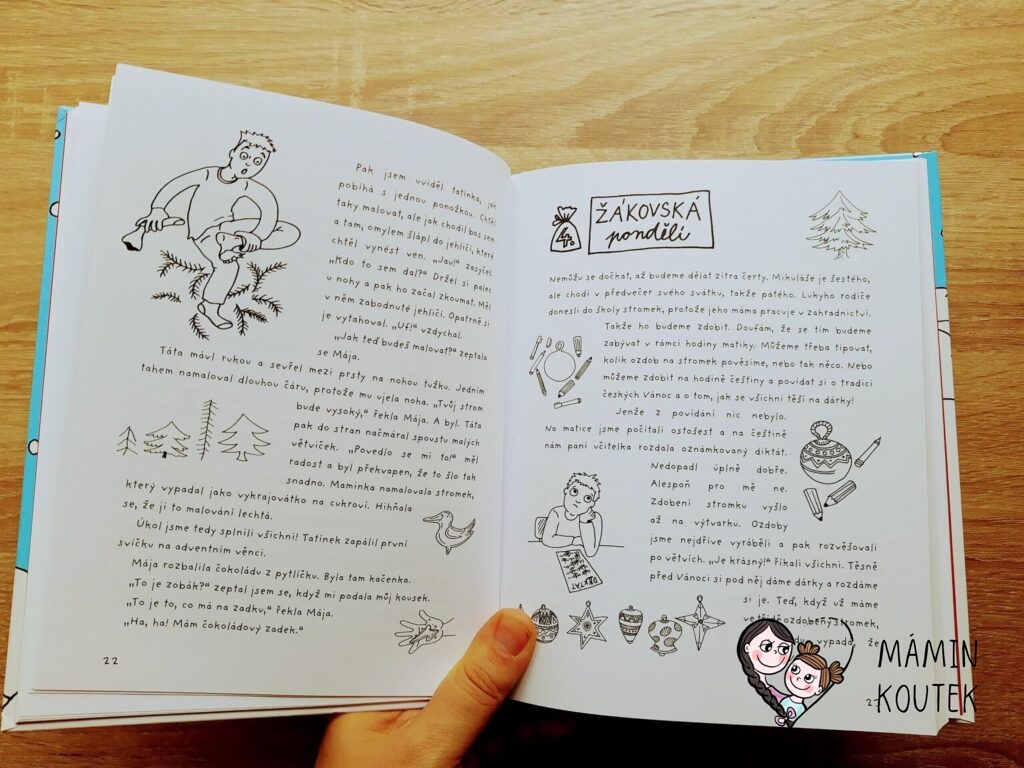 Pak jsem uviděl tatínka, jak
pobíhá s jednou ponožkou. Chtěl
taky malovat, ale jak chodil bos sem
a tam, omylem šlápl do jehličí, které
chtěl vynést ven. „Jau!“ zasyčel.
„Kdo to sem dal?“ Držel si palec
u nohy a pak ho začal zkoumat. Měl
v něm zabodnuté jehličí. Opatrně si
je vytahoval. „Uf!“ vzdychal.
„Jak teď budeš malovat?“ zeptala
se Mája.
Táta mávl rukou a sevřel mezi prsty na nohou tužku. Jedním
tahem namaloval dlouhou čáru, protože mu ujela noha. „Tvůj strom
bude vysoký,“ řekla Mája. A byl. Táta
pak do stran načmáral spoustu malých
větviček. „Povedlo se mi to!“ měl
radost a byl překvapen, že to šlo tak
snadno. Maminka namalovala stromek,
který vypadal jako vykrajovátko na cukroví. Hihňala
se, že ji to malování lechtá.
Úkol jsme tedy splnili všichni! Tatínek zapálil první
svíčku na adventním věnci.
Mája rozbalila čokoládu z pytlíčku. Byla tam kačenka.
„To je zobák?“ zeptal jsem se, když mi podala můj kousek.
„To je to, co má na zadku,“ řekla Mája.
„Ha, ha! Mám čokoládový zadek.“
22
4.
ŽÁKOVSKÁ
pondělí
Nemůžu se dočkat, až budeme dělat zítra čerty. Mikuláše je šestého,
ale chodí v předvečer svého svátku, takže pátého. Lukyho rodiče
donesli do školy stromek, protože jeho máma pracuje v zahradnictví.
Takže ho budeme zdobit. Doufám, že se tím budeme
zabývat v rámci hodiny matiky. Můžeme třeba tipovat,
kolik ozdob na stromek pověsíme, nebo tak něco. Nebo
můžeme zdobit na hodině češtiny a povídat si o tradici
českých Vánoc a o tom, jak se všichni těší na dárky!
Jenže z povídání nic nebylo.
Na matice jsme počítali ostošest a na češtině
nám paní učitelka rozdala oznámkovaný diktát.
Nedopadl úplně dobře.
Alespoň pro mě ne.
Zdobení stromku vyšlo
až na výtvarku. Ozdoby
jsme nejdříve vyráběli a pak rozvěšovali
po větvích. „Je krásný!“ říkali všichni. Těsně
před Vánoci si pod něj dáme dárky a rozdáme
si je. Teď, když už máme
ozdobený stromek,
vypadá, že
DIKTÁT
MÁMIN
KOUTEK